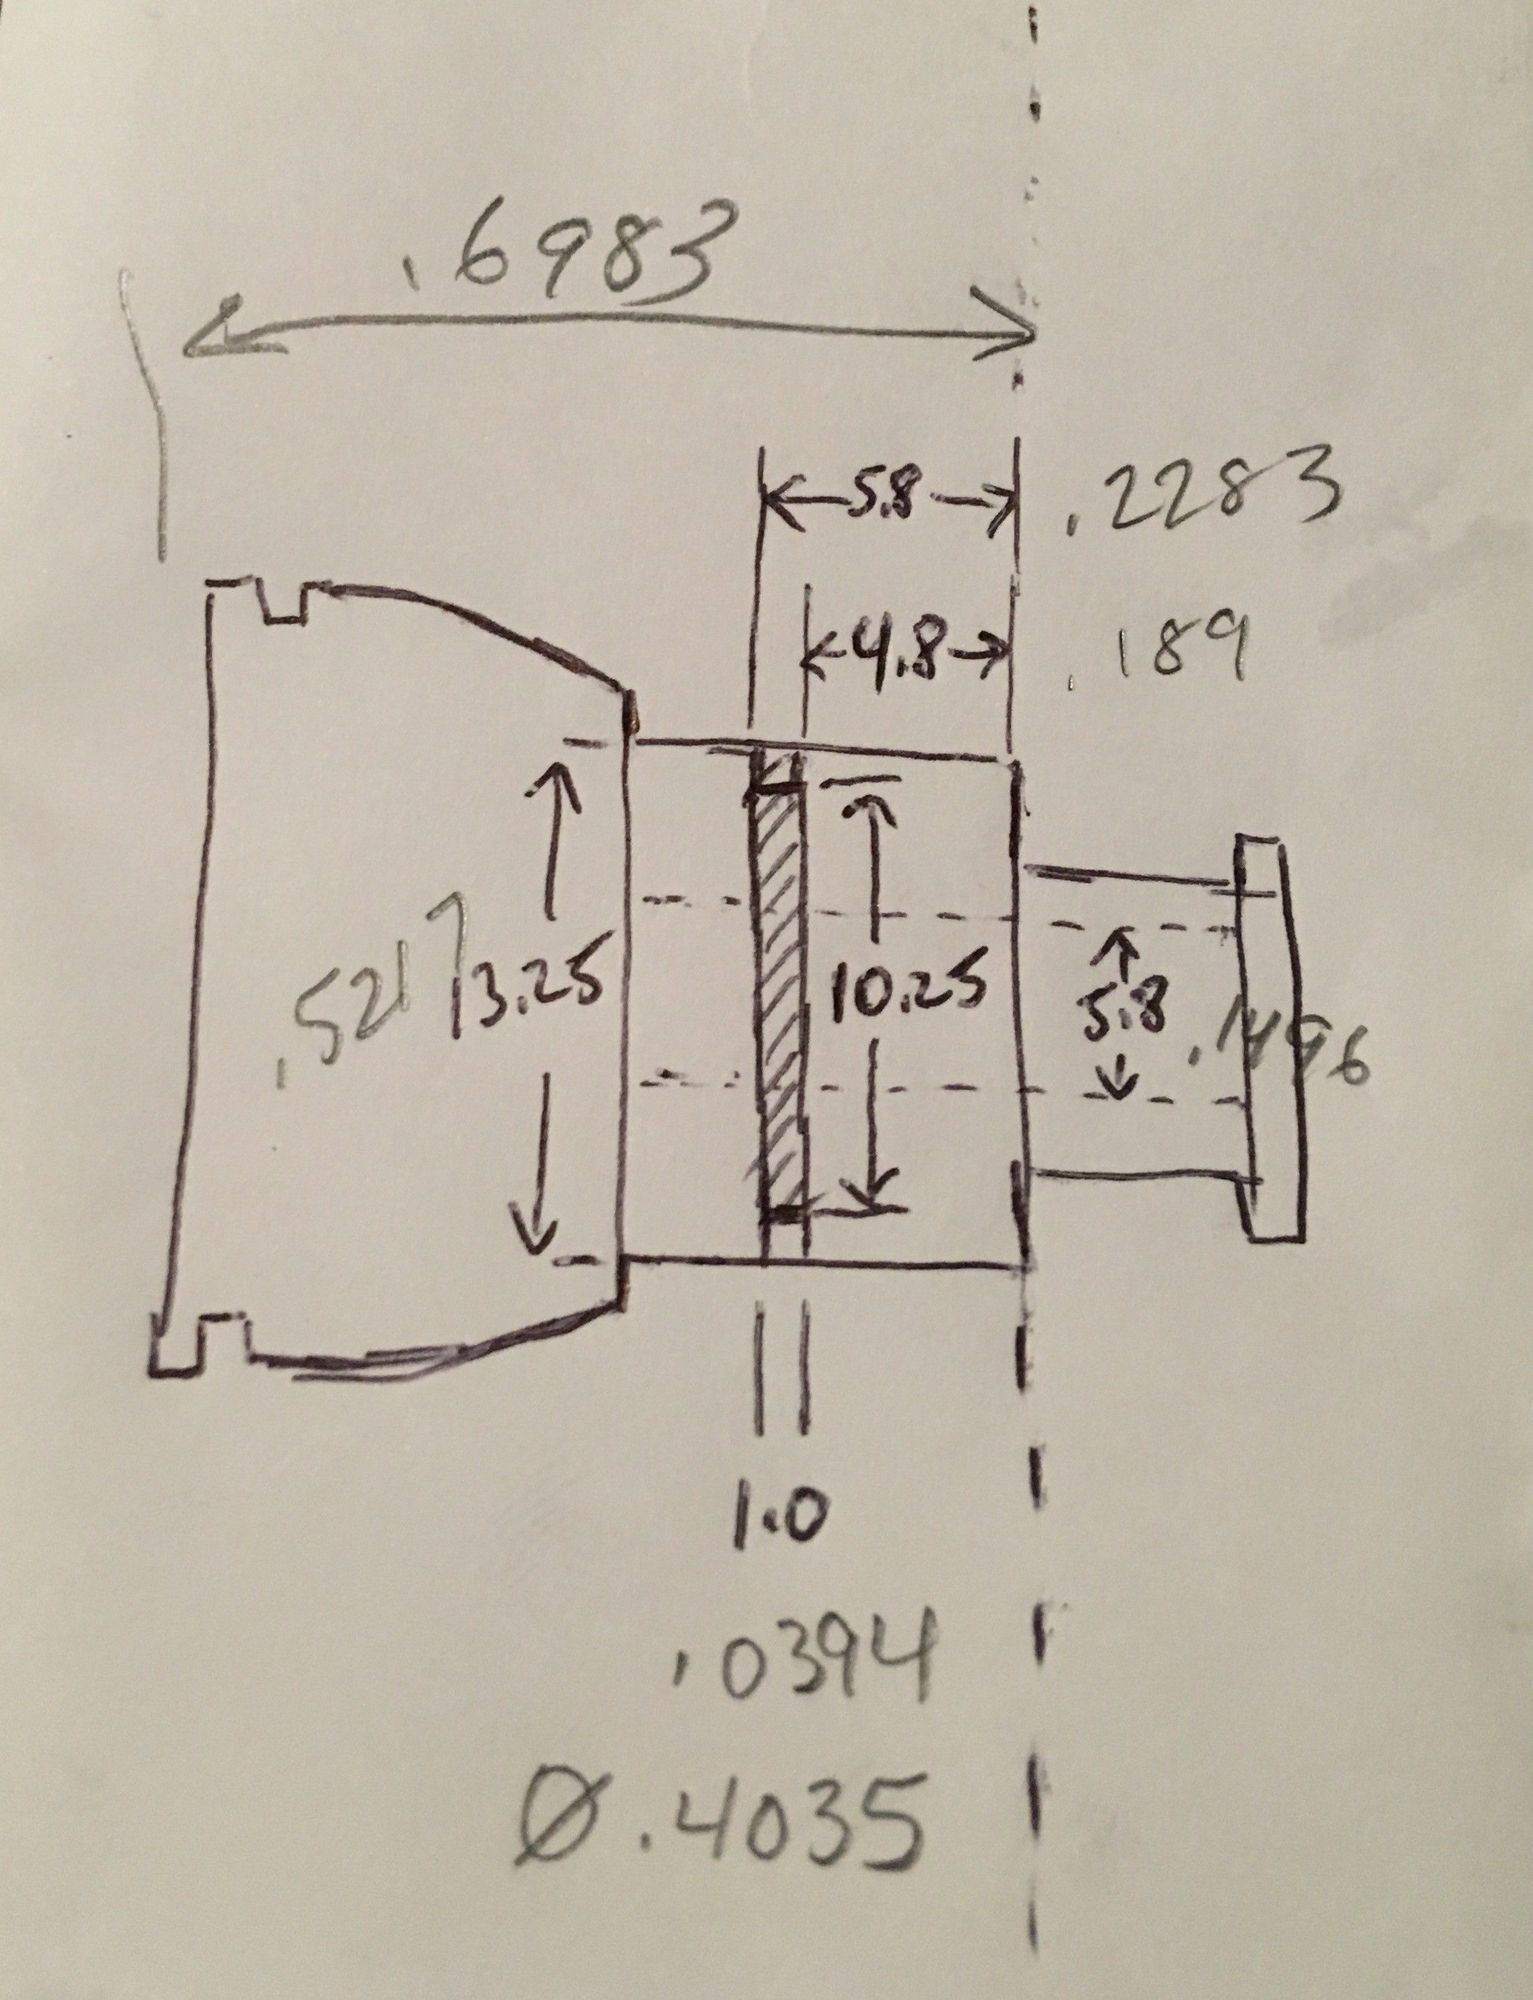 .6983
5.8 .2283
4.8 .189
.5217 13.25 10.25 5.8 .1496
1.0
.0394
Ø.4035